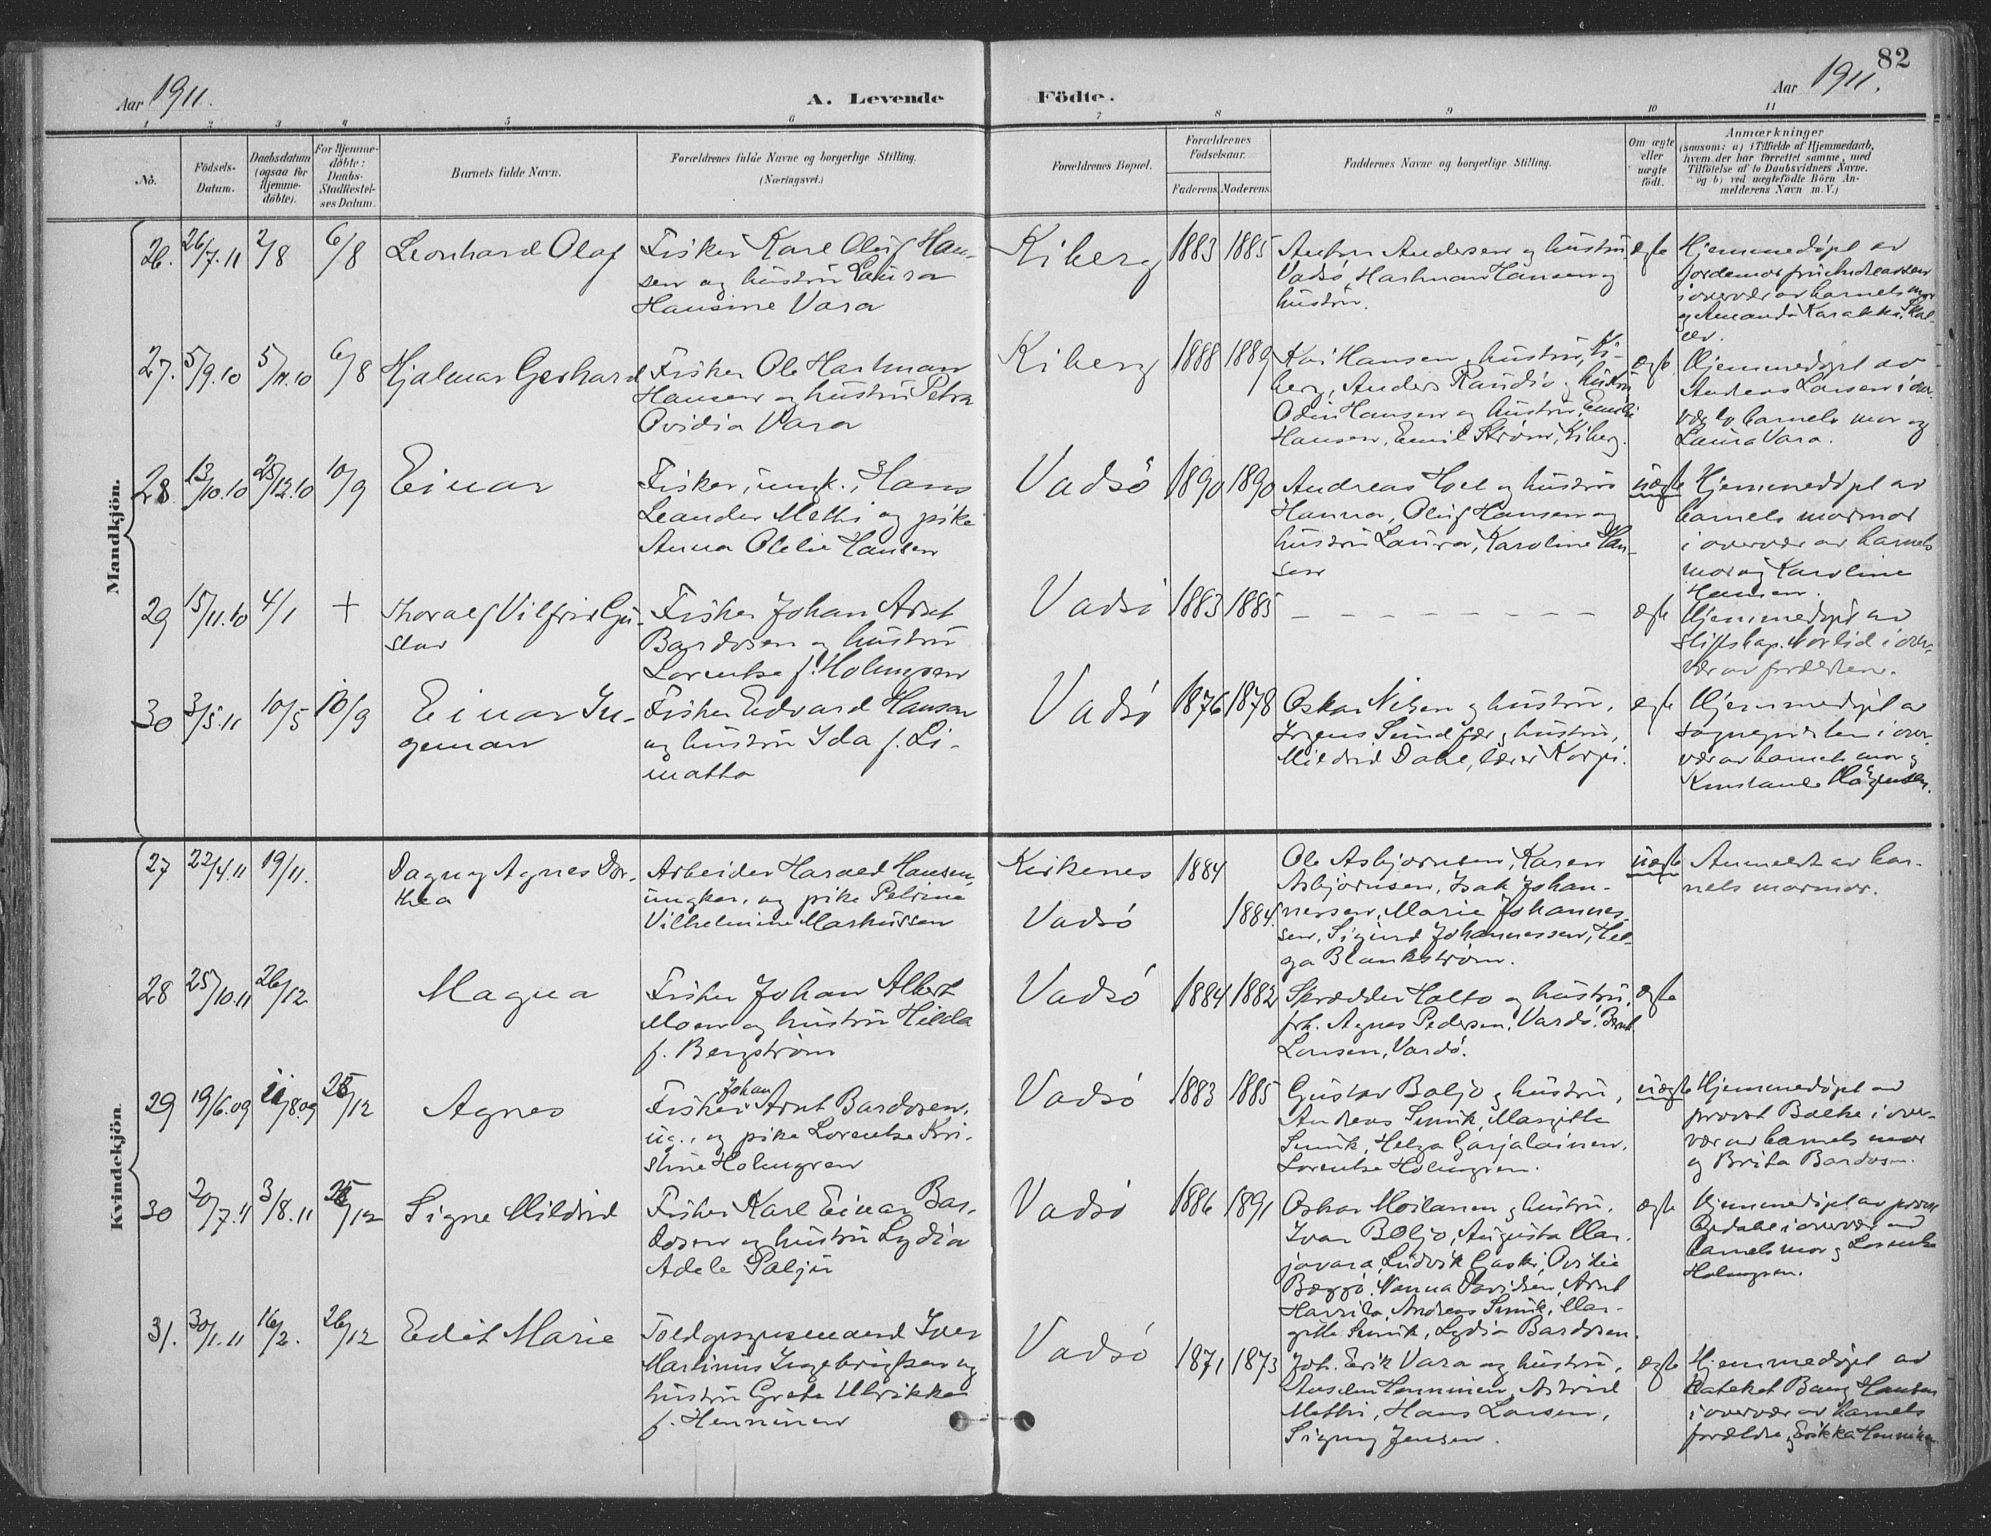 82
Aar 1911.
A. Levende Födte.
Aar 1911.
1 2 3 4 5 6 7 8 9 10 11
No.
Födsels-
Datum.
Daabsdatum
(ogsaa for
Hjemme-
döbte).
For Hjemme-
döbte:
Daabs-
Stadfæstel-
ses Datum.
Barnets fulde Navn.
Forældrenes fulde Navne og borgerlige Stilling.
(Næringsvei.)
Forældrenes Bopæl.
Forældrenes
Födselsaar.
Faderens.
Moderens.
Faddernes Navne og borgerlige Stilling.
Om ægte
eller
uægte
födt.
Anmærkninger
(saasom: a) i Tilfælde af Hjemmedaab,
hvem der har forrettet samme, med
Tilföielse af to Daabsvidners Navne.
og b) ved uægtefödte Börn An-
melderens Navn m. V.)
Mandkjön.
26. 26/7.11 2/8 6/8
Leonhard Olaf
Fisker Karl Oluf Han-
sen og hustru Laura
Hansine Vara
Kiberg
1883 1885
Anton Andersen og hustru
Vadsö, Hartman Hansen og
hustru.
ægte
Hjemmedöpt av
jordemor fru Andreassen
i overvær av barnets mor
og Amanda Karakka,
27. 5/9.10 5/11.10 6/8
Hjalmar Gerhard
Fisker Ole Hartman
Hansen og hustru Petra
Ovidia Vara
Kiberg
1888 1889
Hansen og hustru, Ki-
berg, Anders Randio og hustru
Odin Hansen og hustru, Emilie
Hansen, Emil Ström, Kiberg.
ægte
Hjemmedöpt av
Andreas Larsen i over-
vær av barnets mor og
Laura Vara.
28. 13/10.10 25/12.10 10/9
Einar
Fisker, ungk., Hans
Leander Methi og pike
Anna Olelie Hansen
Vadsö
1890 1890
Andreas Hoel og hustru
Hanna, Oluf Hansen og
hustru Laura, Karoline Han-
sen
uægte
Hjemmedöpt av
barnets mormor
i overvær av barnets
mor og Karoline
Hansen.
29 15/11.10 4/1 +
Thoralf Vilfrid Gu-
stav
Fisker Johan Arnt
Bardosen og hustru
Lorentse f. Holmgren
Vadsö
1883 1885
– – – – – – – –
ægte
Hjemmedöpt av
stiftskap. Hortid i over-
vær av forældrene.
30 3/5.11 10/5 10/9
Einar In-
gemar
Fisker Edvard Hansen
og hustru Ida f. Li-
matta
Vadsö
1876 1878
Oskar Nilsen og hustru,
Jörgens Sundfær og hustru,
Mildrid Dahl, lærer Korpi.
ægte
Hjemmedöpt av
sognepresten i over-
vær av barnets mor og
Kvindekjön.
27 22/4.11 19/11.
Dagny Agnes Dor-
thea
Arbeider Harald Hansen,
ungkar, og pike Petrine
Vilhelmine Markussen
Kirkenes
Vadsö
1884
1884.
Ole Asbjörnsen, Karen
Asbjörnsen, Isak Johan-
nessen, Marie Johannes-
sen, Sigurd Johannessen, Hel-
ga Blankström.
uægte
Anmeldt av bar-
nets mormor.
28 25/10.11 26/12
Magna
Fisker Johan Albert
Moen og hustru Hilda
f. Bergström
Vadsö
1884 1882
Skrædder Holto og hustru,
frk. Agnes Pedersen, Vardö. Bernt
Larsen, Vardö.
ægte
29 19/6.09 11/8.09 25/12
Agnes
Fisker Johan Arnt Bardosen,
ug., og pike Lorentse Kri-
stine Holmgren
Vadsö
1883 1885
Gustav Baljo og hustru,
Andreas Sunik, Margitte
Sunik, Helga Garjalainen,
Lorentse Holmgren.
uægte
Hjemmedöpt av
provst Balke i over-
vær av barnets mor
og Brita Bardosen.
30 20/7.11 3/8.11 25/12
Signe Mildrid
Fisker Karl Einar Bar-
dosen og hustru Lydia
Adele Palju
Vadsö
1886 1891
Oskar Moilanen og hustru,
Ivar Boljo, Augusta Mar-
javara, Ludvik Gaski, Ovidie
Bæggo, Nanna Davidsen, Arnt
Harrila, Andreas Sunik, Mar-
gitte Sunik, Lydia Bardosen.
ægte
Hjemmedöpt av
Opdahl i overvær av
barnets mor og Lorentse
Holmgren.
31. 30/1.11 16/2. 26/12
Edit Marie
Toldopsynsmand Iver
Martinus Ingebrigtsen og
hustru Grete Ulrikke
f. Henninen
Vadsö
1871 1873
Joh. Erik Vara og hustru,
Anselm Henninen, Astrid
Methi, Hans Larsen,
Signy Jensen.
ægte
Hjemmedöpt av
kateket Bang Hansen
i overvær av barnets
forældre og Erikka Henninen.